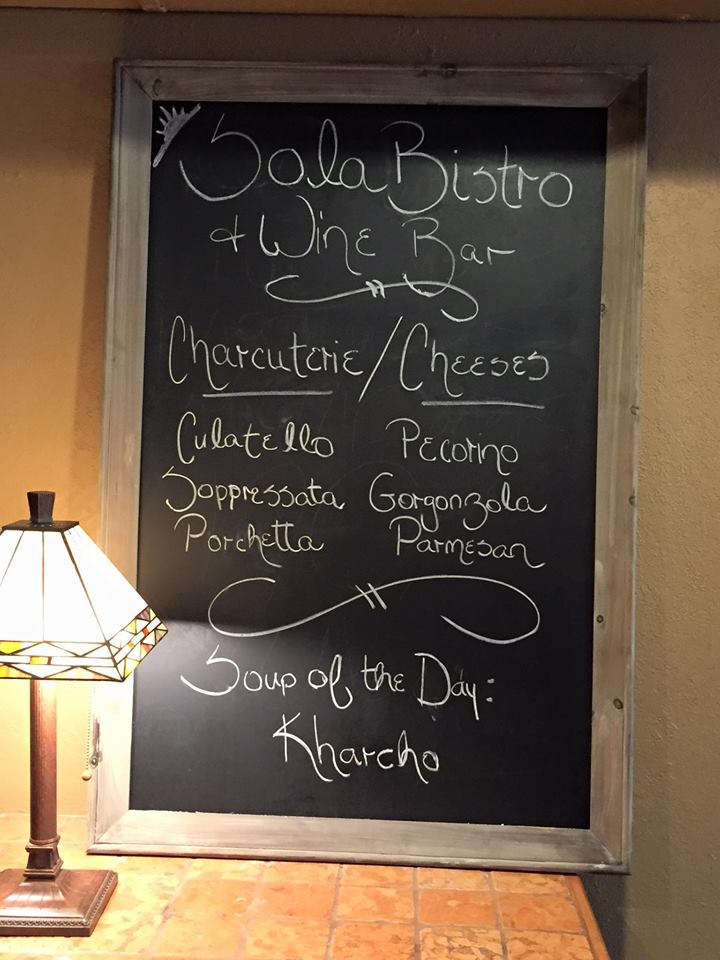 Sola Bistro
& Wine Bar
Charcuterie/Cheeses
Culatello Pecorino
Soppressata Gorgonzola
Porchetta Parmesan
Soup of the Day:
Kharcho